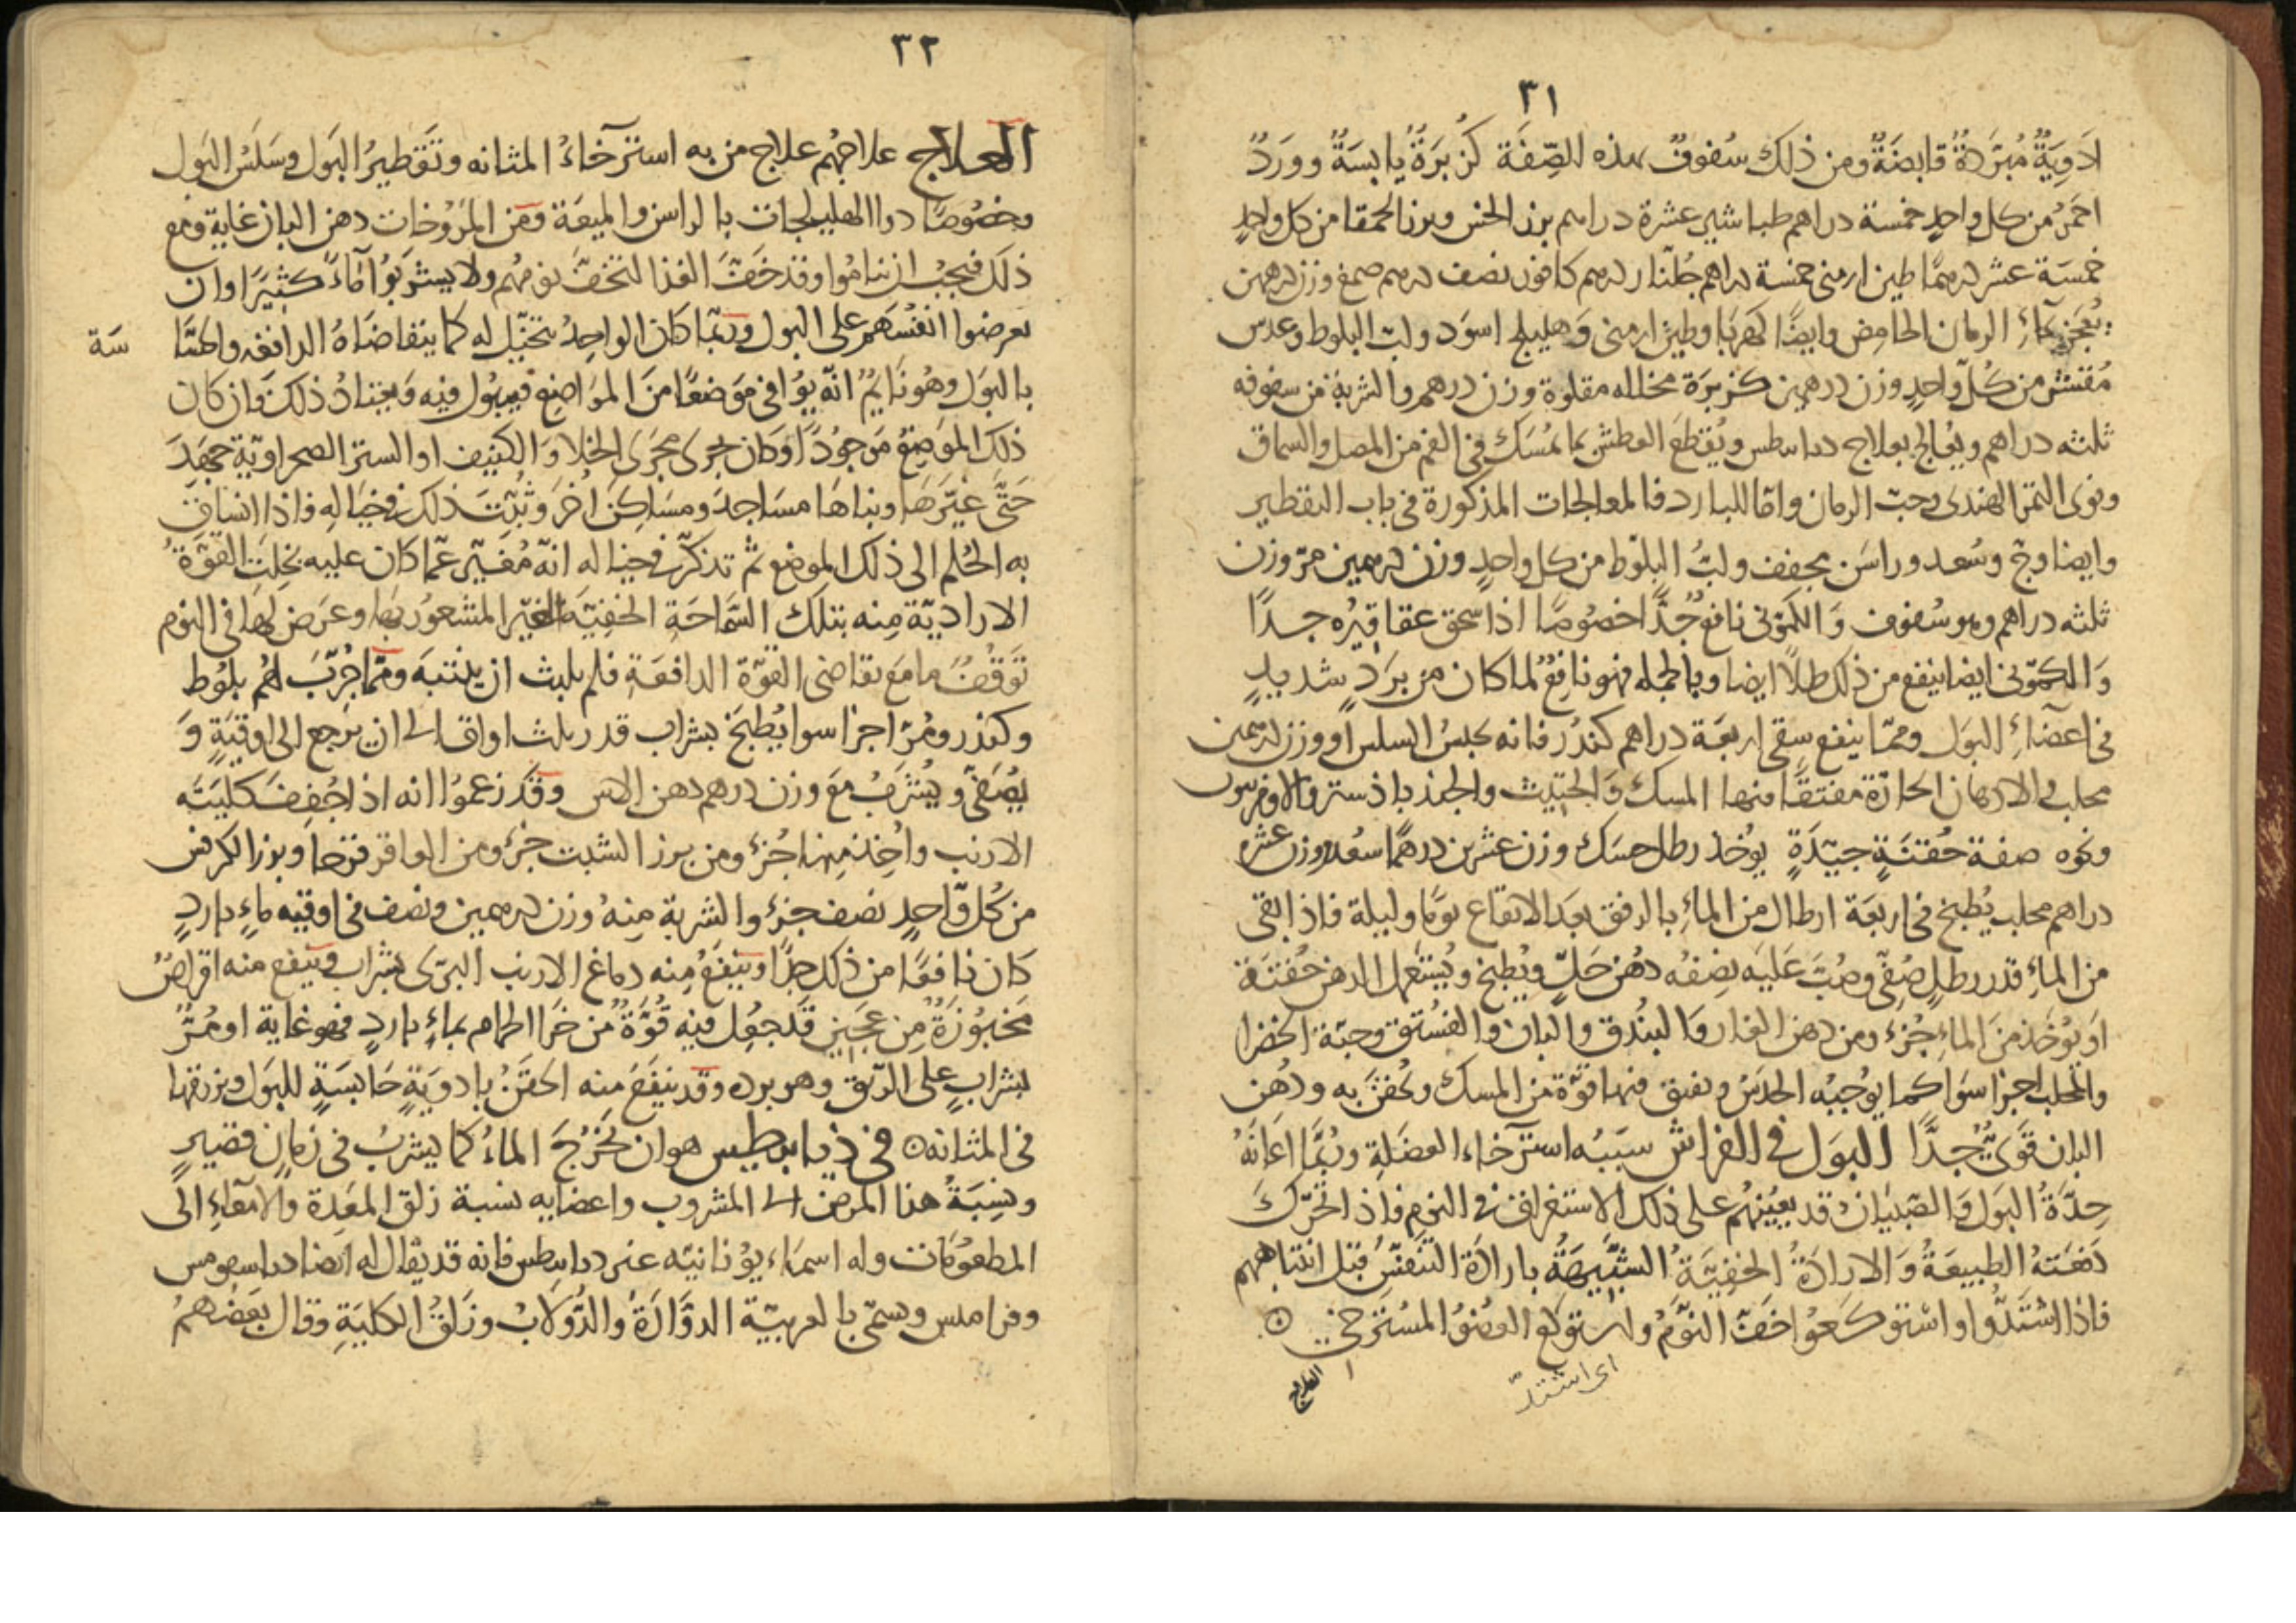 ٣١
ادوية مبردة قابضة ومن ذلك سفوف بهذه الصفة كزبرة يابسة وورد
احمر من كل واحد خمسة دراهم طباشير عشرة دراهم بزر الخس وبزر الحمقا من كل واحد
خمسة عشر درهما طين ارمنى خمسة دراهم جلنار درهم كافور نصف درهم صمغ وزن درهمين
يعجن بماء الرمان الحامض وايضا كهربا وطين ارمنى وهليلج اسود ولب البلوط وعدس
مقشر من كل واحد وزن درهمين كزبرة مخلله مقلوة وزن درهم والشربة من سفوفه
ثلثه دراهم ويعالج بعلاج ديابيطس ويقطع العطش بما يمسك فى الفم من المصل والسماق
ونوى التمر الهندى وحب الرمان واما للبارد فالمعالجات المذكورة فى باب التقطير
وايضا وج وسعد وراسن مجفف ولب البلوط من كل واحد وزن درهمين مر وزن
ثلثه دراهم وهو سفوف والكمونى نافع جدا خصوصا اذا سحق عقاقيره جدا
والكمونى ايضا ينفع من ذلك طلا ايضا وبالجمله فهو نافع لما كان من برد شديد
فى اعضاء البول ومما ينفع سقى اربعة دراهم كندر فانه يحبس السلس او وزن درهمين
محلب فى الادهان الحارة مفتقا فيها المسك والحلتيت والجندباذستر والاوفربيون
ونحوه صفة حقنة جيدة يوخذ رطل حسك وزن عشرين درهما سعد وزن عشرة
دراهم محلب يطبخ فى اربعة ارطال من الماء بالرفق بعد الانقاع يوما وليلة فاذا بقى
من الماء قدر رطل صفى وصب عليه نصفه دهن حل ويطبخ ويستعمل الدهن حقنة
او يوخذ من الماء جزء ومن دهن الغار والبندق والبان والفستق وحبة الخضرا
والمحلب اجزا سوا كما يوجبه الحدس ويفتق فيها قوة من المسك ويحقن به ودهن
البان قوى جدا البول فى الفراش سببه استرخاء العضلة وربما اعانه
حدة البول والصبيان قد يعينهم على ذلك الاستغراق فى النوم فاذا تحرك
دفعته الطبيعة والارادة الخفية الشبيهة بارادة التنفس قبل انتباههم
فاذا اشتدوا واستوكعوا خف النوم ولم يستوكع العضو المسترخى
اى اشتد
العلاج
٣٢
العلاج علاجهم علاج من به استرخاء المثانه وتقطير البول وسلس البول
وخصوصا دوا الهليلجات بالراسن والميعة ومن المروخات دهن البان غاية ومع
ذلك فيجب ان يناموا وقد خفف الغذا لتخف نومهم ولا يشربوا ماء كثيرا وان
يعرضوا انفسهم على البول وربما كان الواحد يتخيل له كما يتقاضاه الدافعه والحسا سة
بالبول وهو نايم انه يوافى موضعا من المواضع فيبول فيه ويعتاد ذلك فان كان
ذلك الموضع موجودا وكان يجرى مجرى الخلا والكنيف او الستر الصحراوية جهد
حتى غيرها وبناها مساجد ومساكن اخر وثبت ذلك فى خياله فاذا انساق
به الحلم الى ذلك الموضع ثم تذكر فى خياله انه مغير عما كان عليه بخلت القوة
الارادية منه بتلك السماحة الخفية الغير المشعور بها وعرض لها فى النوم
توقف ما مع تقاضى القوة الدافعة فلم يلبث ان ينتبه ومما جرب لهم بلوط
وكندر ومر اجزا سوا يطبخ بشراب قدر ثلث اواق الى ان يرجع الى اوقية و
يصفى ويشرب مع وزن درهم دهن الاس وقد زعموا انه اذا جفف كلية
الارنب واخذ منها جزء ومن بزر الشبت جزء ومن العاقرقرحا وبزر الكرفس
من كل واحد نصف جزء والشربة منه وزن درهمين ونصف فى اوقيه ماء بارد
كان نافعا من ذلك جدا وينفع منه دماغ الارنب البرى بشراب وينفع منه اقراص
مخبوزة من عجين قد جعل فيه قوة من خرا الحمام بماء بارد فهو غاية او مر
بشراب على الريق وهو برده وقد ينفع منه الحقن بادوية حابسة للبول ويزرقها
فى المثانه فى ذيابيطس هو ان يخرج الماء كما يشرب فى زمان قصير
ونسبة هذا المرض الى المشروب واعضايه نسبة زلق المعدة والامعاء الى
المطعومات وله اسماء يونانيه غير ديابيطس فانه قد يقال له ايضا دياسقومس
وقراميس ويسمى بالعربية الدوارة والدولاب وزلق الكلية وقال بعضهم